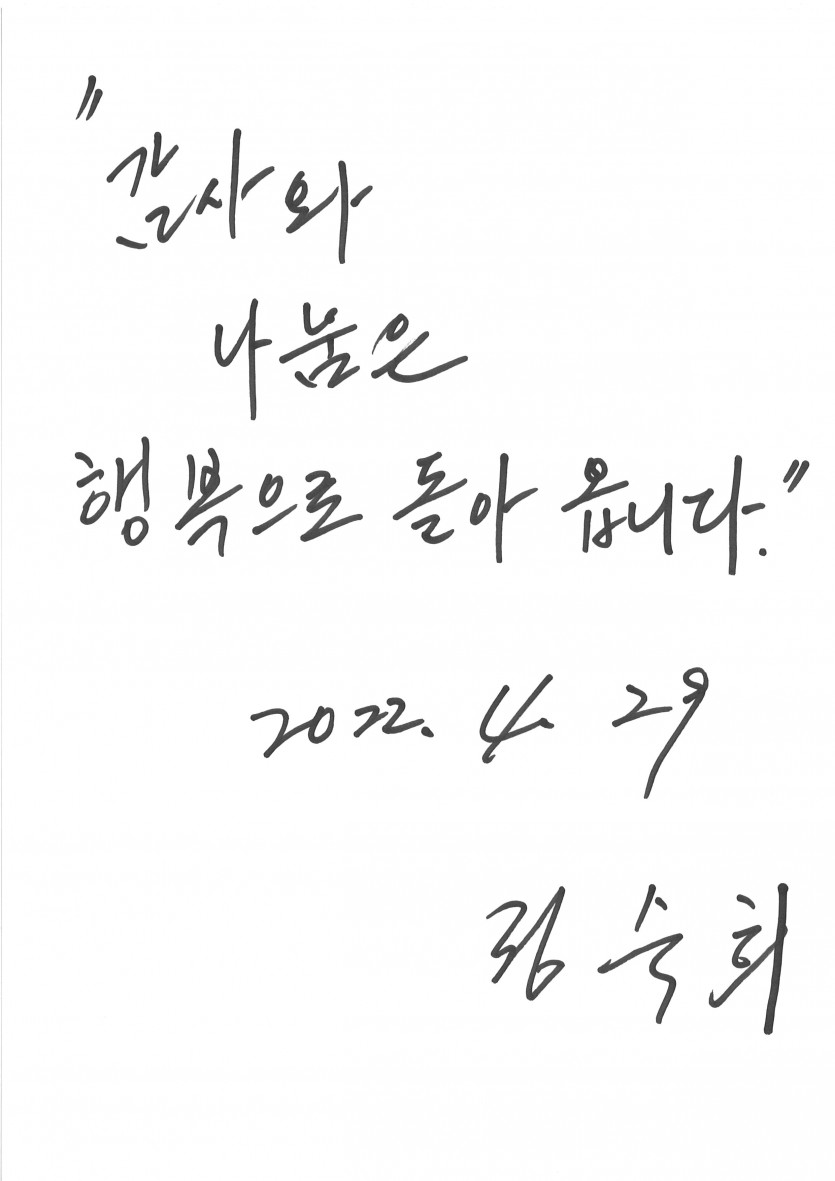 "감사와
나눔은
행복으로 돌아 옵니다."
2022. 4. 29
숙희